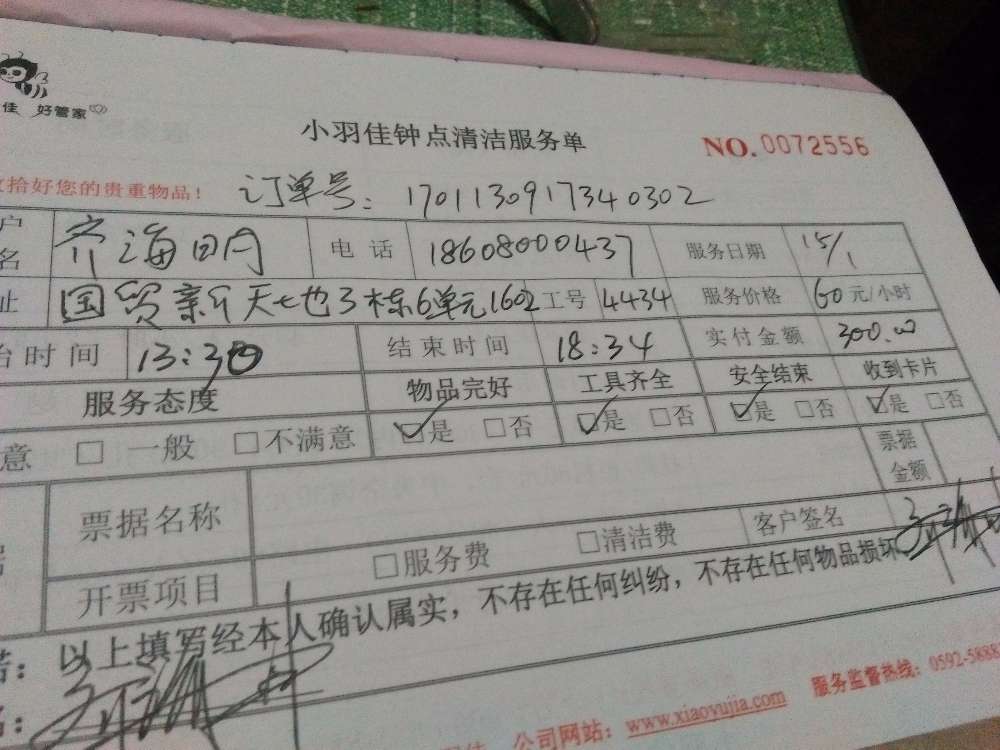 佳 好管家
小羽佳钟点清洁服务单
NO.0072556
拾好您的贵重物品！ 订单号：1701130917340302
户名 齐海明 电话 18608000437 服务日期 15/1
址 国贸新天地3栋6单元1602 工号 4434 服务价格 60元/小时
时间 13:30 结束时间 18:34 实付金额 300.00
服务态度 物品完好 工具齐全 安全结束 收到卡片
意 □ 一般 □不满意 ☑是 □否 ☑是 □否 ☑是 □否 ☑是 □否
票据名称 票据金额
开票项目 □服务费 □清洁费 客户签名
：以上填写经本人确认属实，不存在任何纠纷，不存在任何物品损坏
公司网站：www.xiaoyujia.com 服务监督热线：0592-5888